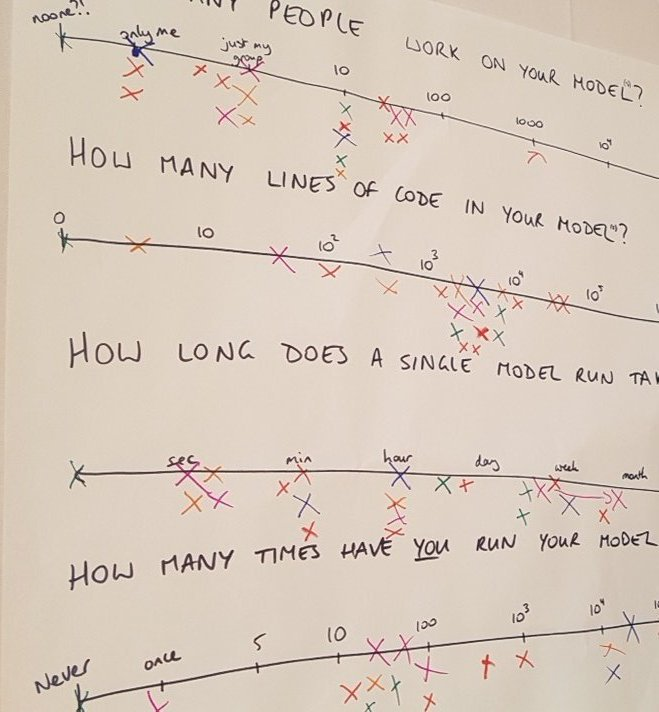 PEOPLE
WORK ON YOUR MODEL(*)?
noone?!
only me
just my group
10
100
1000
10⁴
HOW MANY LINES OF CODE IN YOUR MODEL(*)?
0
10
10²
10³
10⁴
10⁵
HOW LONG DOES A SINGLE MODEL RUN TA
sec
min
hour
day
week
month
HOW MANY TIMES HAVE YOU RUN YOUR MODEL
Never
once
5
10
100
10³
10⁴